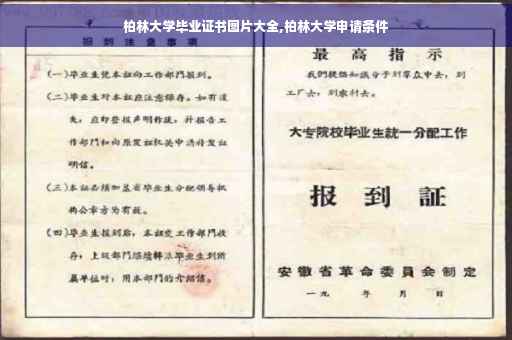 柏林大学毕业证书图片大全,柏林大学申请条件
报到注意事项
(一)毕业生凭本证向工作部门报到。
(二)毕业生对本证应注意保存。如有遗
失,应即登报声明作废,并报告工
作部门和向原发证机关申请补发证
明信。
(三)本证必须加盖省毕业生分配领导机
构公章方为有效。
(四)毕业生报到后,本证交工作部门收
存;上级部门
毕业生到所
属单位时,用本部门的介绍信。
最高指示
我们提倡知识分子到群众中去,到
工厂去,到农村去。
大专院校毕业生統一分配工作
报到証
安徽省革命委員会制定
一九 年 月 日